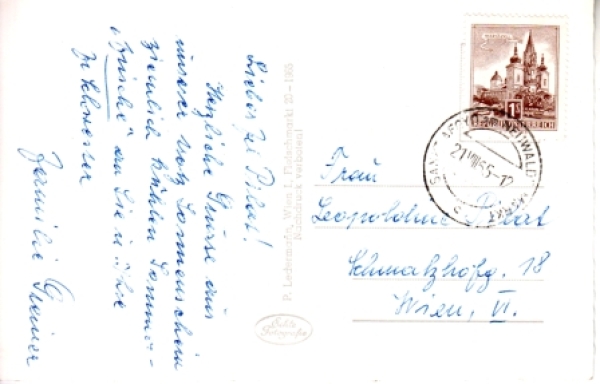 Liebes Frl. Pilat!
Herzliche Grüsse aus
unserer trotz Sonnenschein
ziemlich kühlen Sommer-
"frische" an Sie u. Ihre
Schwester
Familie Greiner
P. Ledermann, Wien I, Fleischmarkt 20 - 1955
Nachdruck verboten!
Echte
Fotografie
ÖSTERREICH
21.VIII.65-12
Frau
Leopoldine Pilat
Schmalzhofg. 18
Wien, VI.